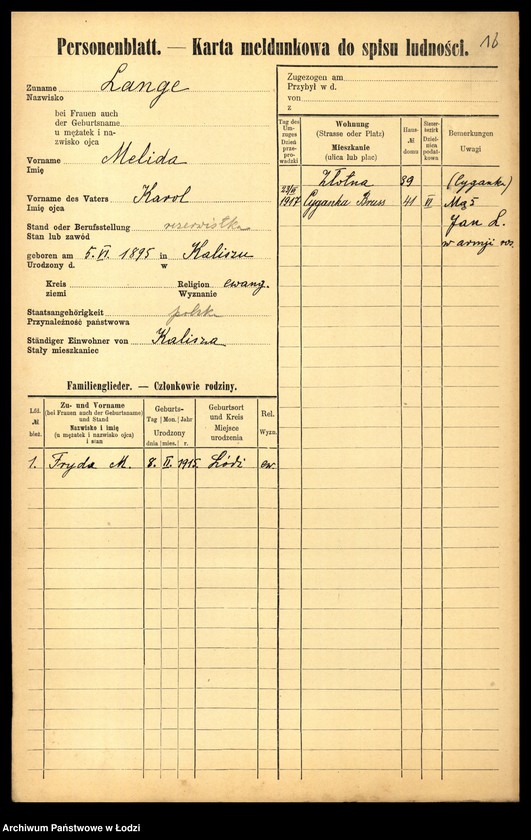 Personenblatt. — Karta meldunkowa do spisu ludności.
16
Zuname Lange
Nazwisko
bei Frauen auch
der Geburtsname
u mężatek i na-
zwisko ojca
Vorname Melida
Imię
Vorname des Vaters Karol
Imię ojca
Stand oder Berufsstellung rezerwistka
Stan lub zawód
geboren am 5. VI. 1895 in Kaliszu
Urodzony d. w
Kreis Religion ewang.
ziemi Wyznanie
Staatsangehörigkeit polsk
Przynależność państwowa
Ständiger Einwohner von Kalisza
Stały mieszkaniec
Zugezogen am
Przybył w d.
von
z
Tag des Umzuges Dzień przeprowadzki
Wohnung (Strasse oder Platz) Mieszkanie (ulica lub plac)
Haus- № domu
Steuerbezirk Dzielnica podatkowa
Bemerkungen Uwagi
Złotna 39 (Cyganka)
23/III 1917 Cyganka Bruss 41 VI Mąż
Jan L.
w armji ros.
Familienglieder. — Członkowie rodziny.
Lfd. № bież.
Zu- und Vorname (bei Frauen auch der Geburtsname) und Stand Nazwisko i imię (u mężatek i nazwisko ojca) i stan
Geburts- Tag Mon. Jahr Urodzony dnia mies. r.
Geburtsort und Kreis Miejsce urodzenia
Rel. Wyzn.
1. Fryda M. 8. II. 1915. Łódź ew.
Archiwum Państwowe w Łodzi